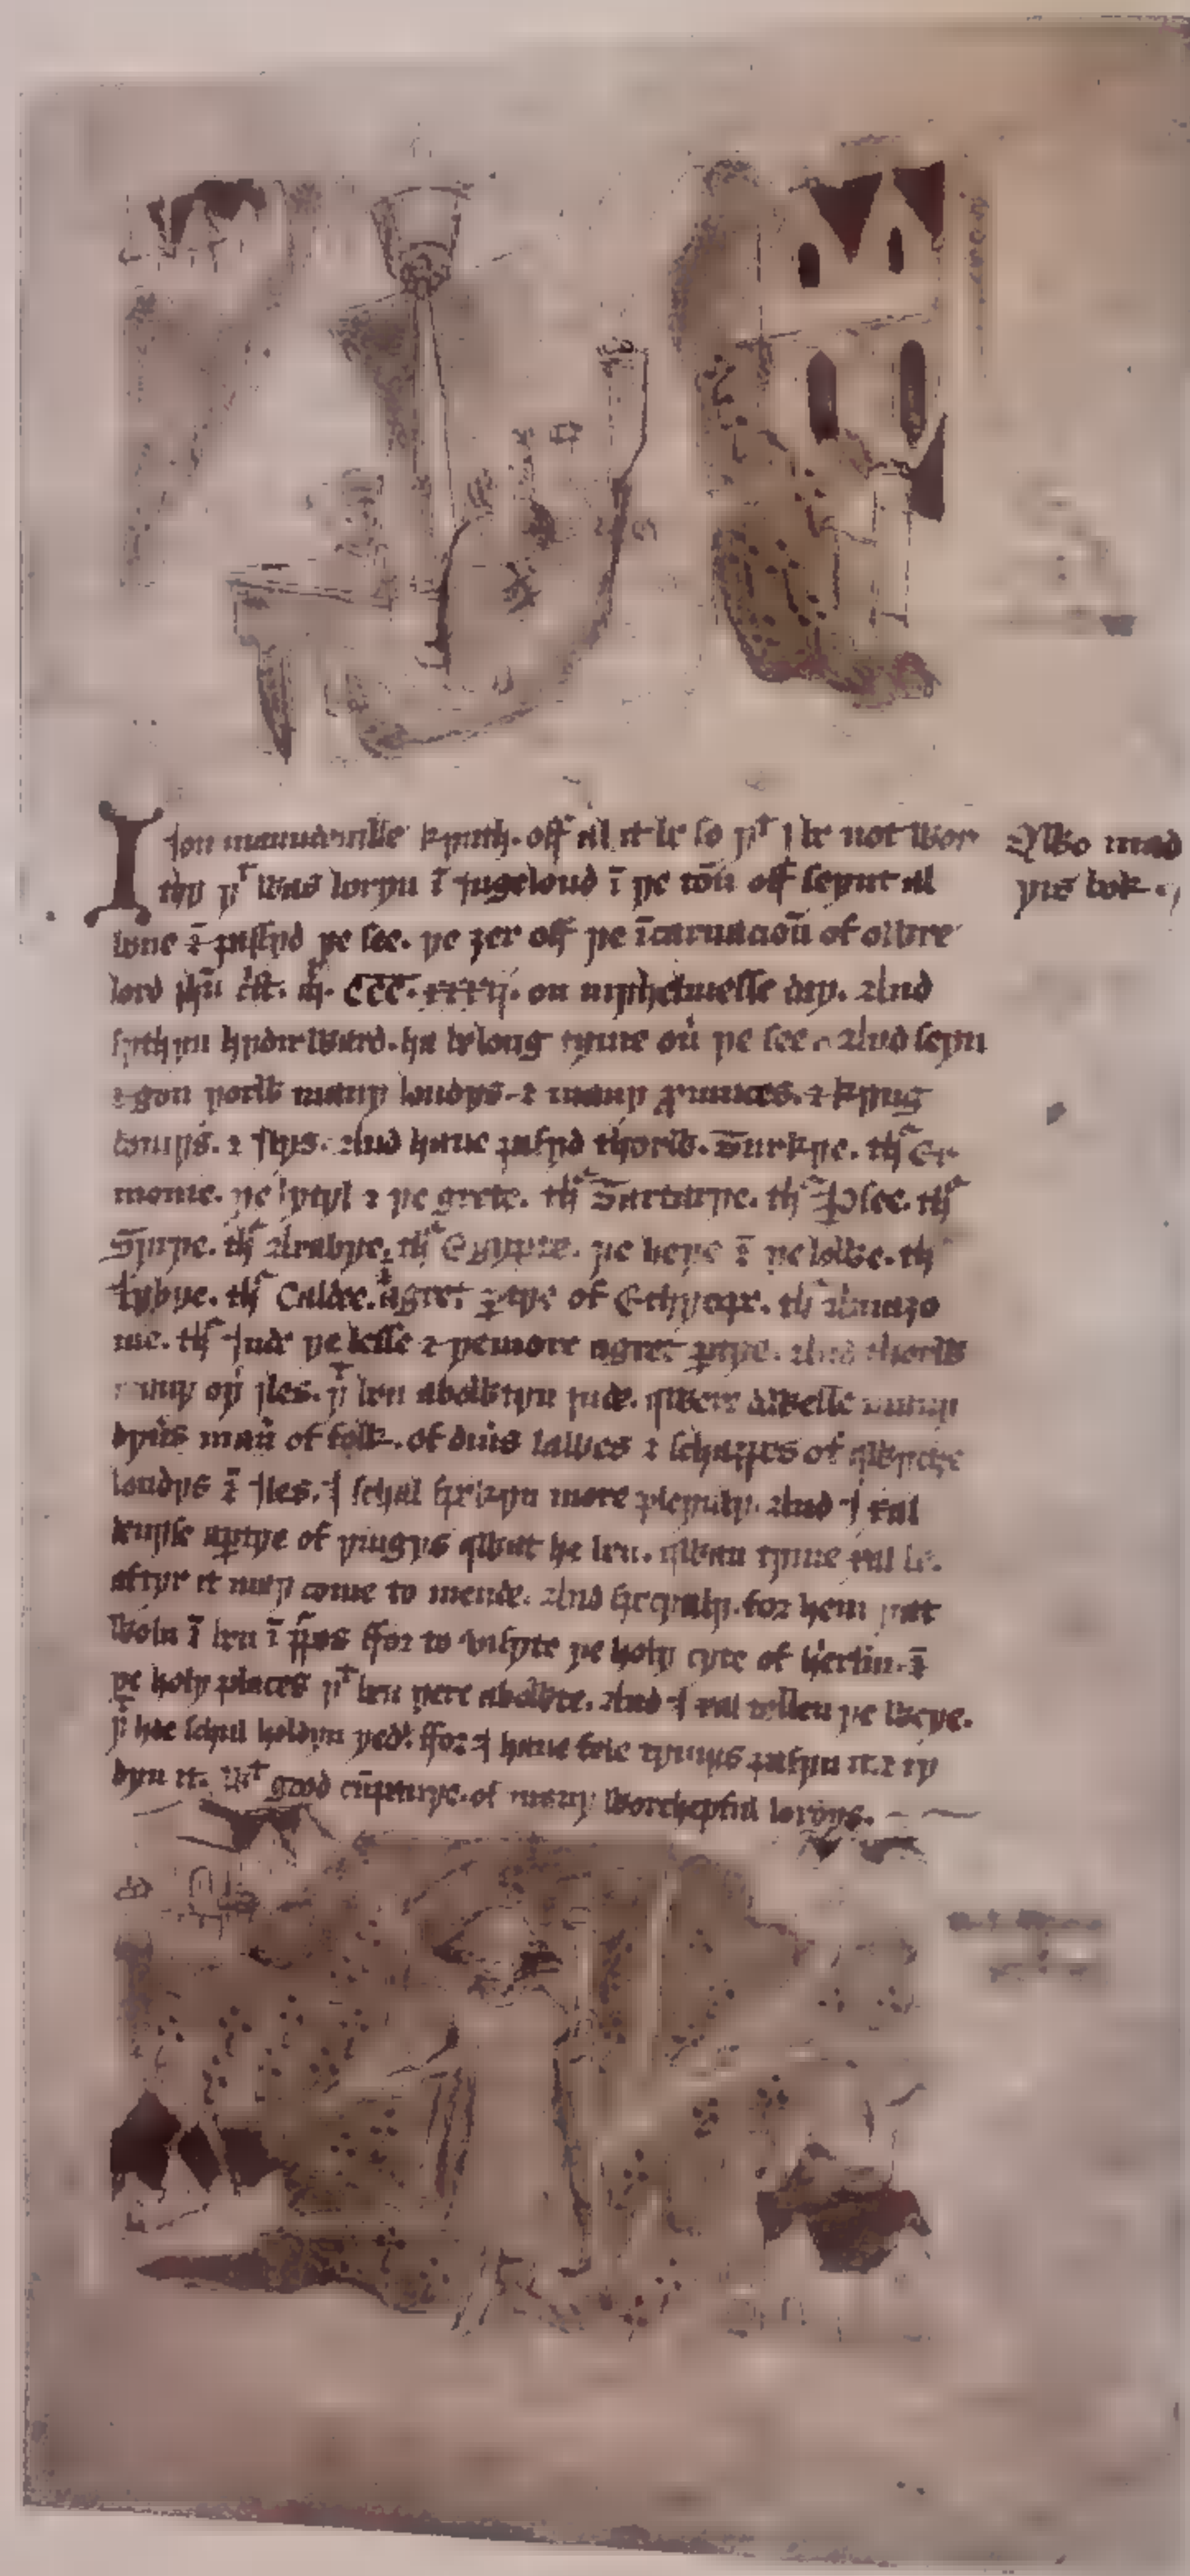 I Jon maundeuille knyth. off al it be so þᵗ I be not wor
thy þᵗ was boryn ī Jngelond ī þe toū off seynt al
bone ⁊ passyd þe see. þe ȝer off þe īcarnacioū of owre
lord ihū c̄st. m̊. CCC. xxxij. on myhelmesse day. And
sythyn hyderward. ha be long tyme ou̓ þe see. And seyn
⁊ gon þorw many londys. ⁊ many ꝓuinces. ⁊ kyng
domys. ⁊ Jlys. And haue passyd thorw. Turkye. thᵃ Er
monie. þe lytyl ⁊ þe grete. thᵃ Tartarye. thᵃ ꝑsee. thᵃ
Syrye. thᵃ Arabye. thᵃ Egypte. þe heye ⁊ þe lowe. thᵃ
lybye. thᵃ Caldee. ⁊ agret ꝑtye of Ethyope. thᵃ Amazo
nie. thᵃ Jnde þe lesse ⁊ þe more agret ꝑtye. And thorw
many oþ̓ Jles. þᵗ ben abowtyn Jnde. qwere dwelle many
dyu̓s man̓ of folk. of diu̓s lawes ⁊ schappes of qwyche
londys ⁊ Jles. I schal spekyn more pleynly. And I xal
deuyse aꝑtye of þingys qwat he ben. qwan tyme xal be.
aftyr it may come to mende. And specyaly. for hem þat
woln ⁊ ben ī ꝑpos ffor to visyte þe holy cyte of Ierlm. ⁊
þe holy places þᵗ ben þere abowte. And I xal tellen þe weye.
þᵗ hee schul holdyn þed̓. ffor I haue fele tymys passyn it. ⁊ ry
dyn it. wᵗ good cūpanye. of many worchepful lordys.
Qwo mad
þis bok